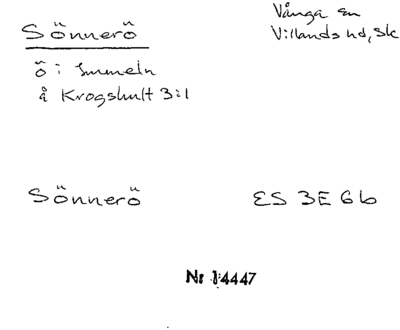 Sönnerö
Vånga sn
Villands hd, Sk
ö i Immeln
å Krogshult 3:1
Sönnerö
ES 3E 6b
Nr 14447